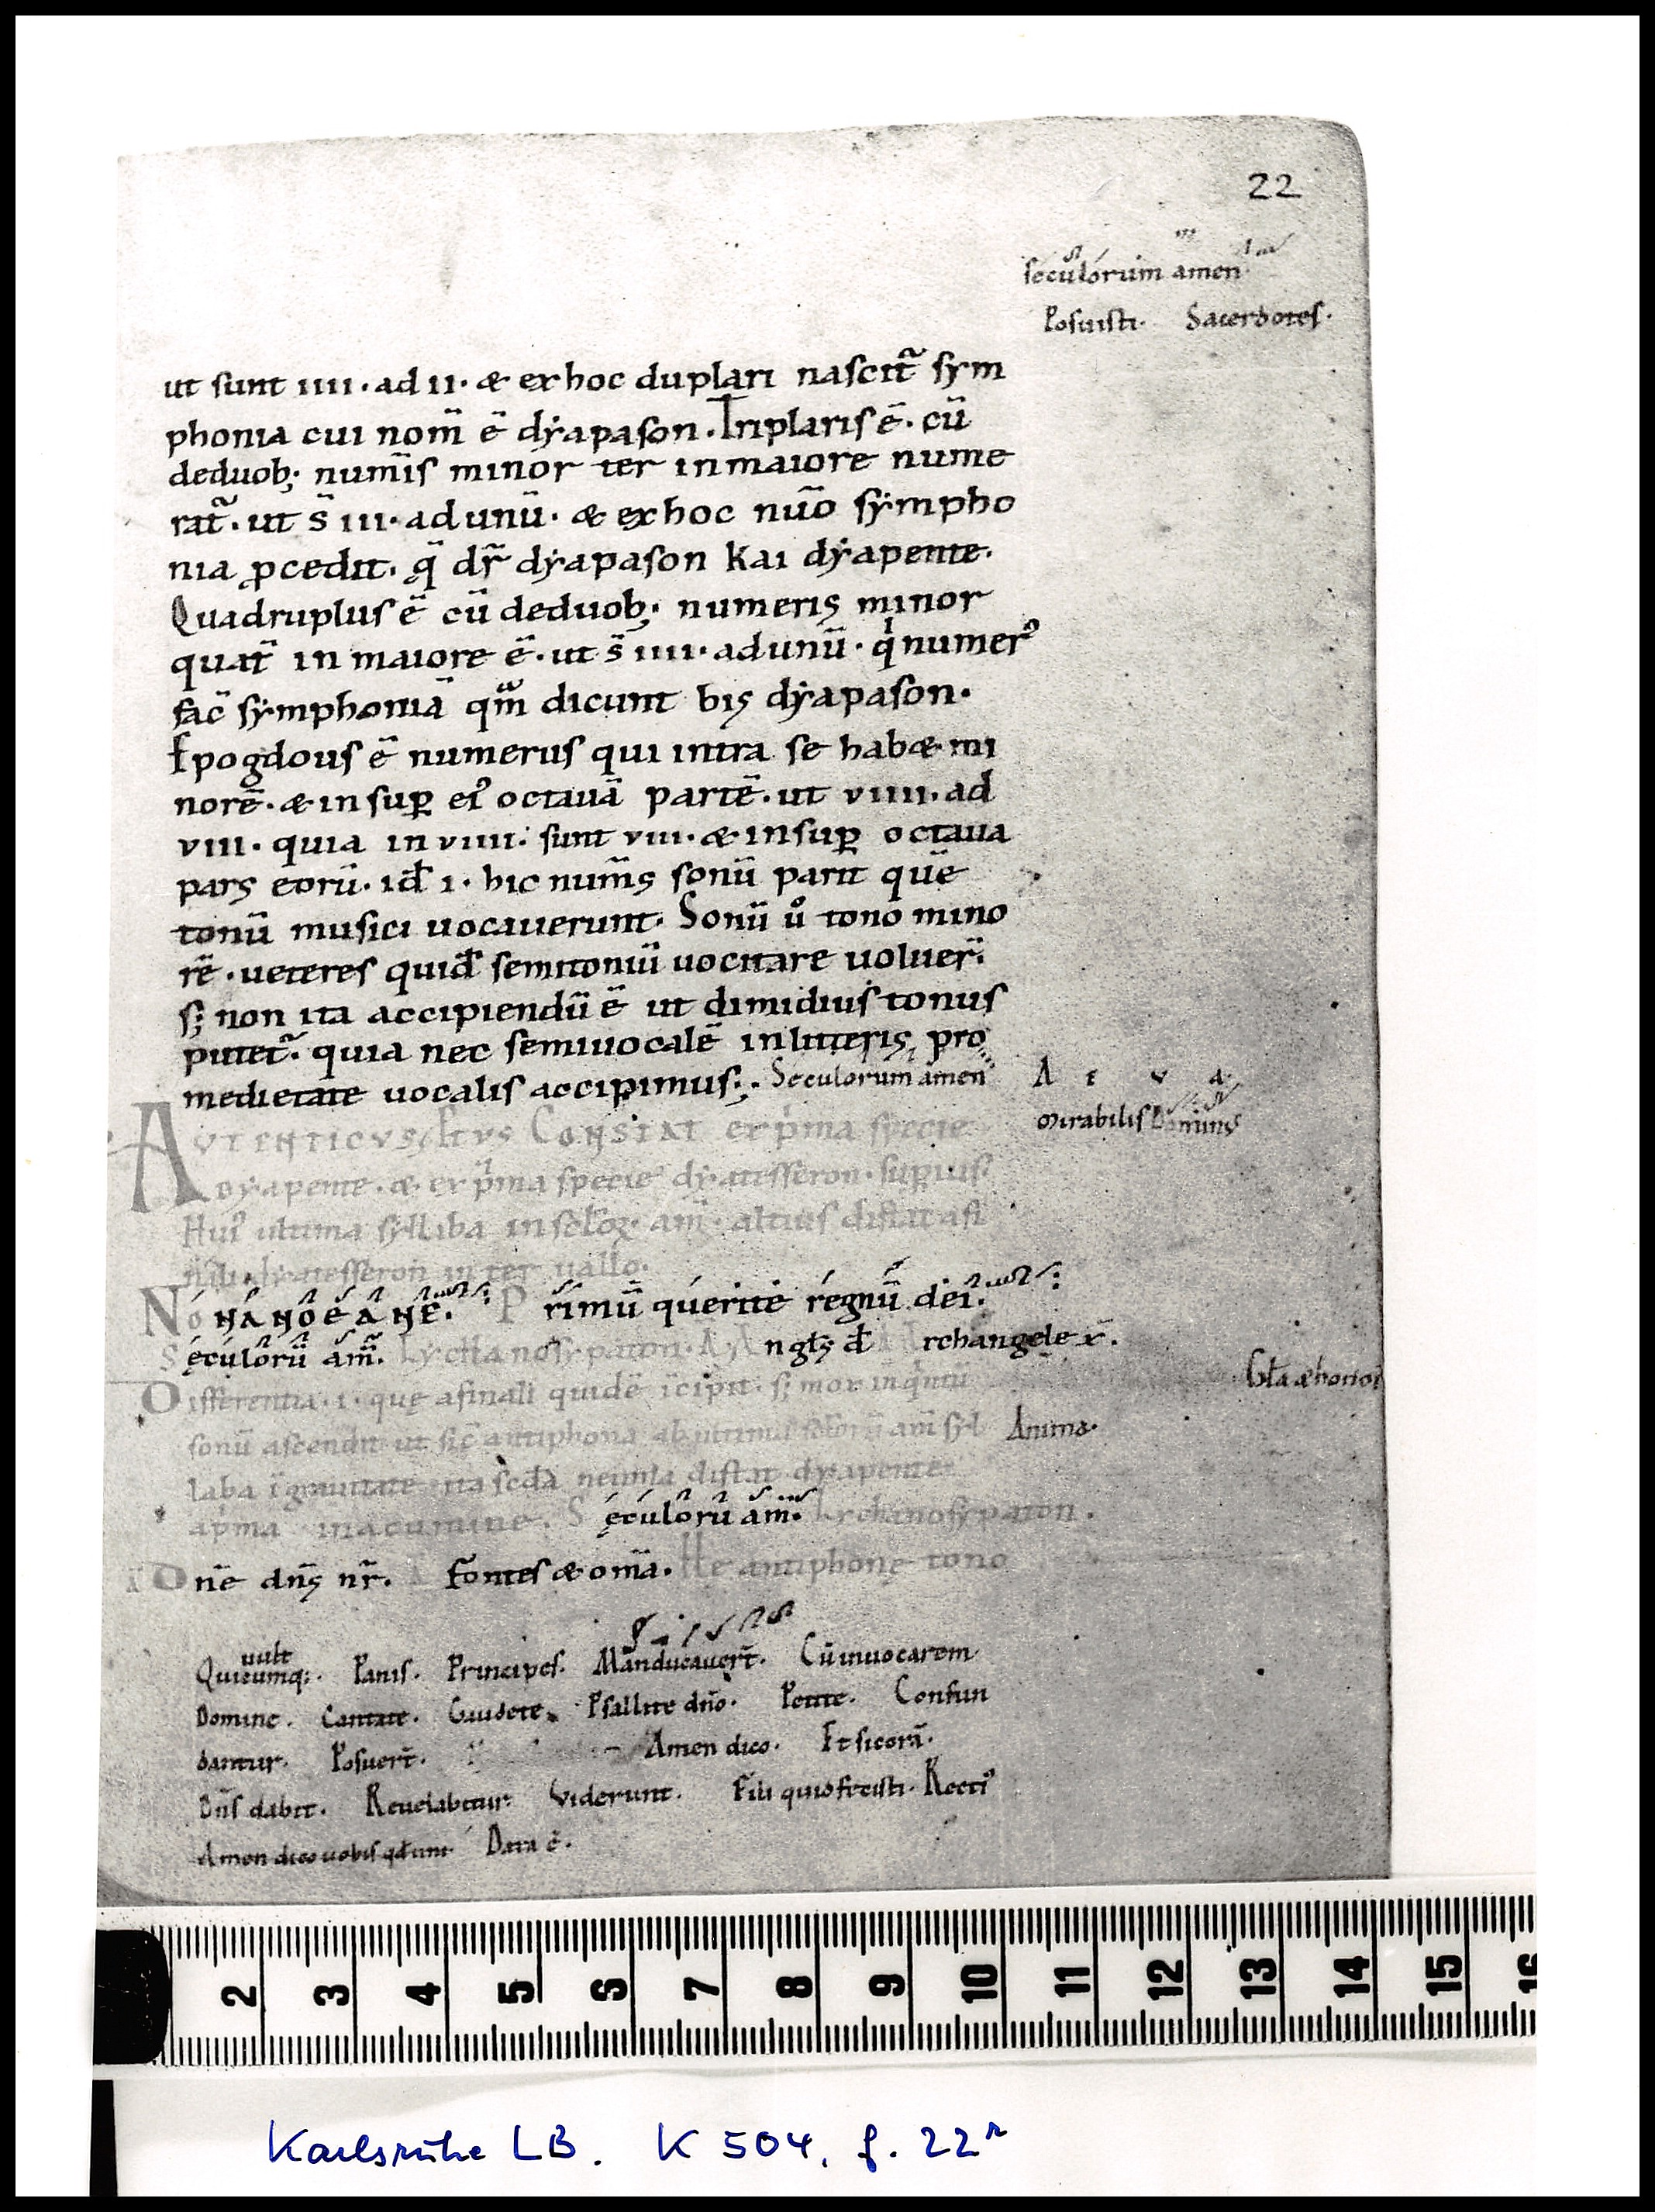 22
seculorum amen
Posuisti. Sacerdotes.
ut sunt IIII. ad II. & ex hoc duplari nascit̃ sym
phonia cui nom̄ ē dẏapason. Triplaris ē. cū
deduob; num̄is minor ter in maiore nume
rat̃. ut s̄ III. ad unū. & ex hoc nūo sẏmpho
nia ꝓcedit. q̄ dr̃ dẏapason kai dẏapente.
Quadruplus ē cū deduob; numeris minor
quat̃ in maiore ē. ut s̄ IIII. ad unū. qͥ numerꝰ
fac̄ sẏmphoniā qm̃ dicunt bis dẏapason.
Epogdous ē numerus qui intra se hab& mi
norē. & insuꝑ eiꝰ octauā partē. ut VIIII. ad
VIII. quia in VIIII. sunt VIII. & insuꝑ octaua
pars eorū. id̄ I. hic num̄s sonū parit quē
tonū musici uocauerunt. Sonū uͦ tono mino
rē. ueteres quid̄ semitoniū uocitare uoluer̄.
s; non ita accipiendū ē ut dimidius tonus
putet̃. quia nec semiuocalē in litteris pro
medietate uocalis accipimus;. Seculorum amen
A e v a.
Mirabilis Dominus
AVTENTICVS CONSTAT ex pͥma specie
dẏapente. & ex pͥma specie dẏatesseron. suꝑius.
Huiꝰ ultima sẏllaba in scloꝝ. am̄. altius distat a fi
nali dẏatesseron inter uallo.
NO NA NO E A NE. Primū querite regnū dei.
Seculorū am̄. Lẏchanosẏpaton. A Angl̄s d̄ Archangele x̄.
Gl̄a & honor
Differentia. I. quę a finali quidē īcipit. s; mox in qͥntū
sonū ascendit ut sic̄ antiphona ab ultima sclorū am̄ sẏl
Anima.
laba ī grauitate ita scd̄a neuma distat dẏapente
a pͥma in acumine. Seculorū am̄. Lychanosẏpaton.
Dn̄e dn̄s nr̃. Fontes & om̄a. He antiphonę tono
uult
Quicumq;. Panis. Principes. Manducauer̄t. Cū inuocarem
Domine. Cantate. Gaudete. Psallite dn̄o. Petite. Confun
dantur. Posuer̄t. Amen dico. Et sicorā.
Dn̄s dabit. Reuelabitur. Viderunt. Fili quid fecisti. Rectiꝰ
Amen dico uobis Data ē.
2 3 4 5 6 7 8 9 10 11 12 13 14 15 16
Karlsruhe LB. K 504, f. 22r